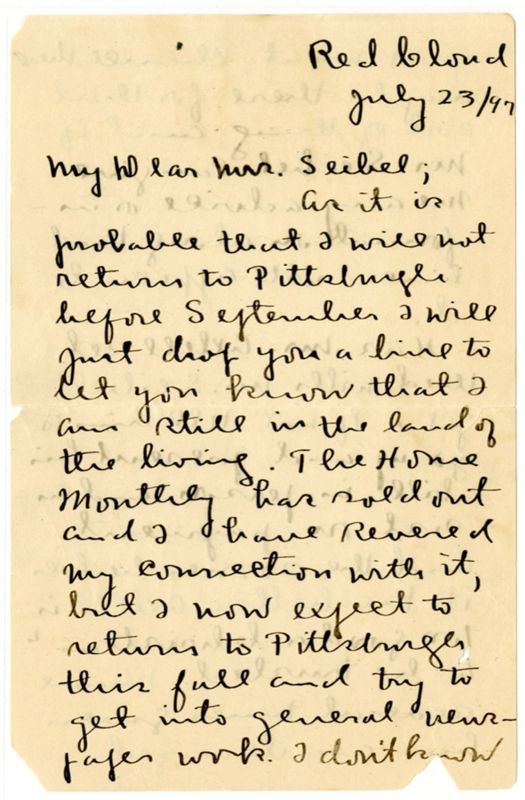 Red Cloud
July 23/97
My Dear Mrs. Seibel;
As it is
probable that I will not
return to Pittsburgh
before September I will
just drop you a line to
let you know that I
am still in the land of
the living. The Home
Monthly has sold out
and I have severed
my connection with it,
but I now expect to
return to Pittsburgh
this fall and try to
get into general news-
paper work. I don't know